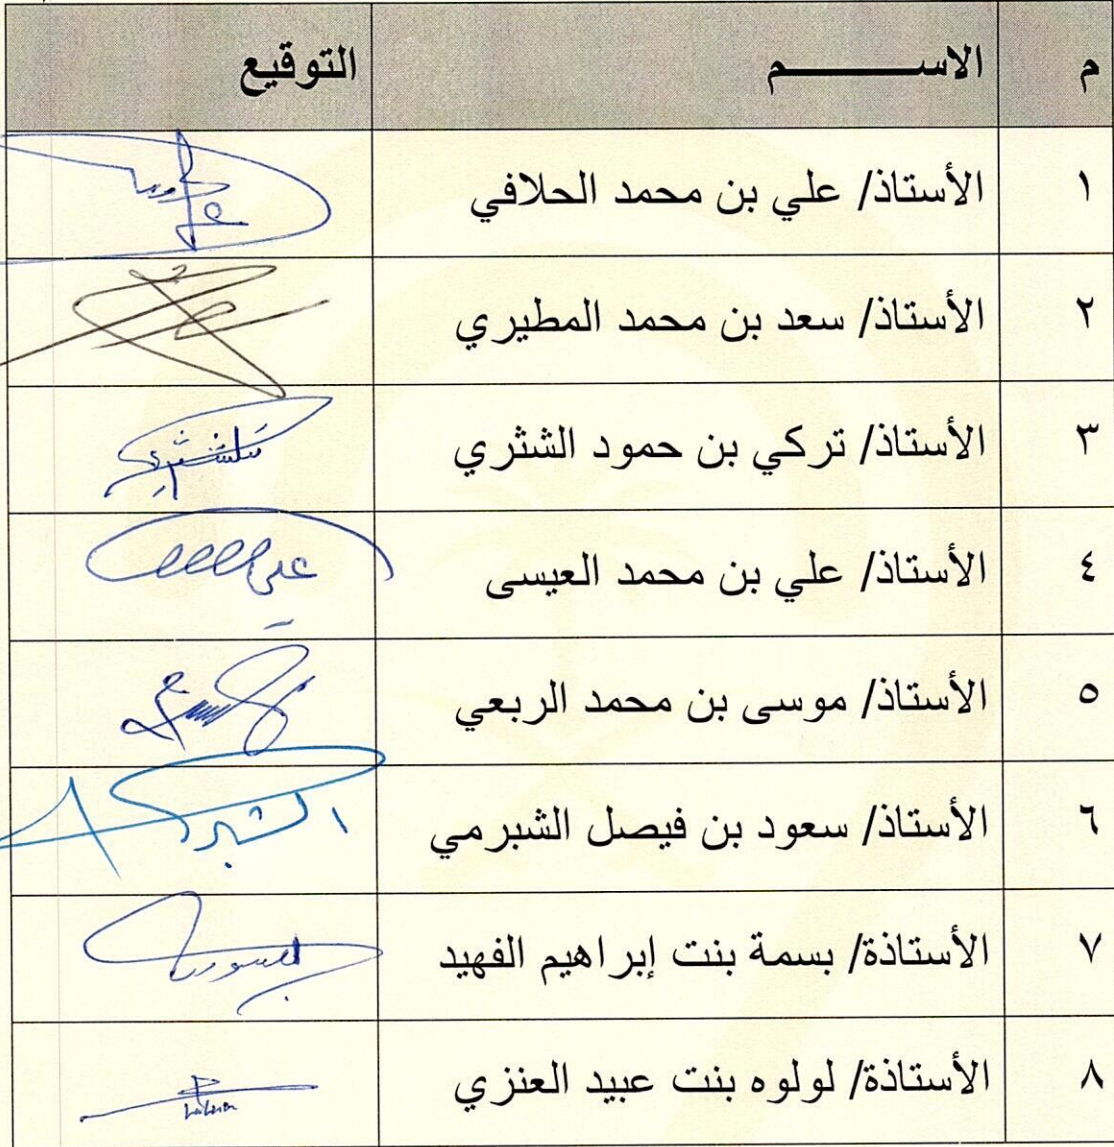 م الاســـــــم التوقيع
١ الأستاذ/ علي بن محمد الحلافي
٢ الأستاذ/ سعد بن محمد المطيري
٣ الأستاذ/ تركي بن حمود الشثري
٤ الأستاذ/ علي بن محمد العيسى
٥ الأستاذ/ موسى بن محمد الربعي
٦ الأستاذ/ سعود بن فيصل الشبرمي
٧ الأستاذة/ بسمة بنت إبراهيم الفهيد
٨ الأستاذة/ لولوه بنت عبيد العنزي